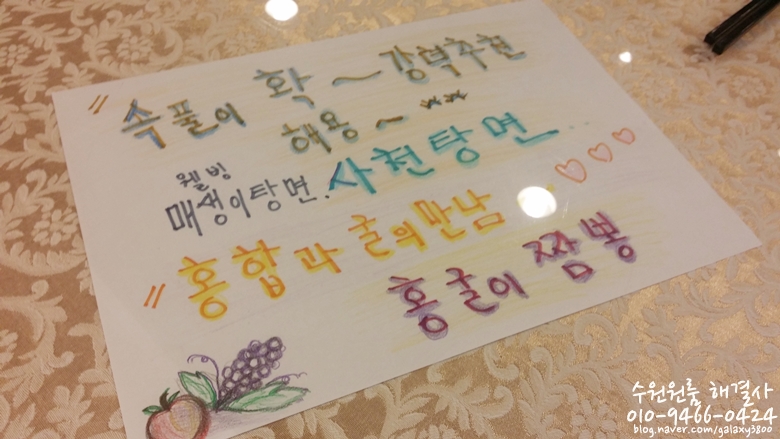 " 속풀이 확 ~ 강력추현
해용~ **
웰빙
매생이탕면. 사천탕면
" 홍합과 굴의 만남 ... ♡♡♡
홍굴이 짬뽕
수원원룸 해결사
010-9466-0424
blog.naver.com/galaxy3800